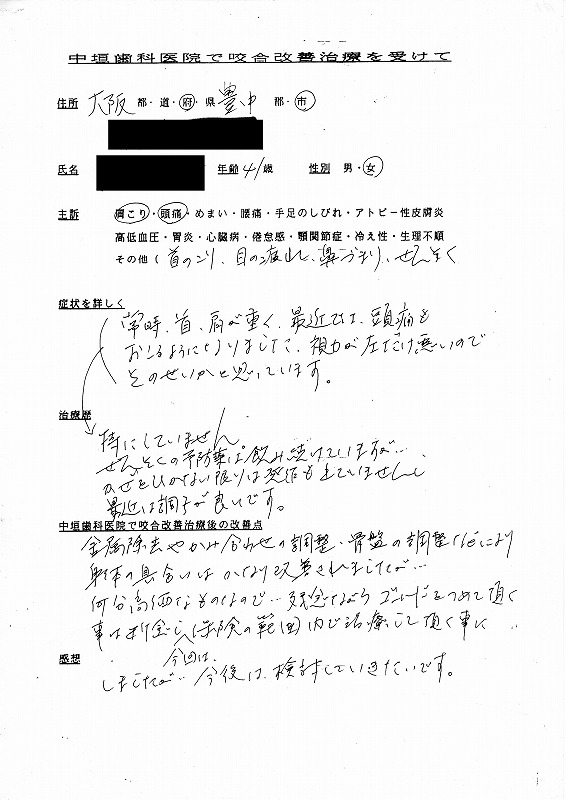 中垣歯科医院で咬合改善治療を受けて
住所 大阪 都・道・府・県 豊中 郡・市
氏名 年齢 41歳 性別 男・女
主訴 肩こり・頭痛・めまい・腰痛・手足のしびれ・アトピー性皮膚炎
高低血圧・胃炎・心臓病・倦怠感・顎関節症・冷え性・生理不順
その他（首のこり、目の疲れ、鼻づまり、ぜんそく
症状を詳しく
常時、首、肩が重く、最近では、頭痛も
おこるようになりました、視力が左だけ悪いので
そのせいかと思っています。
治療歴
特にしていません。
ぜんそくの予防薬は飲み続けていますが…
かぜをひかない限りは発作も出ていませんし
最近は調子が良いです。
中垣歯科医院で咬合改善治療後の改善点
金属除去やかみ合わせの調整・骨盤の調整などにより
身体の具合いはかなり改善されましたが…
何分高価なものなので…残念ながらゴールドをつめて頂く
事は断念し保険の範囲内で治療して頂く事に
今回は、
感想
しましたが…今後は、検討していきたいです。